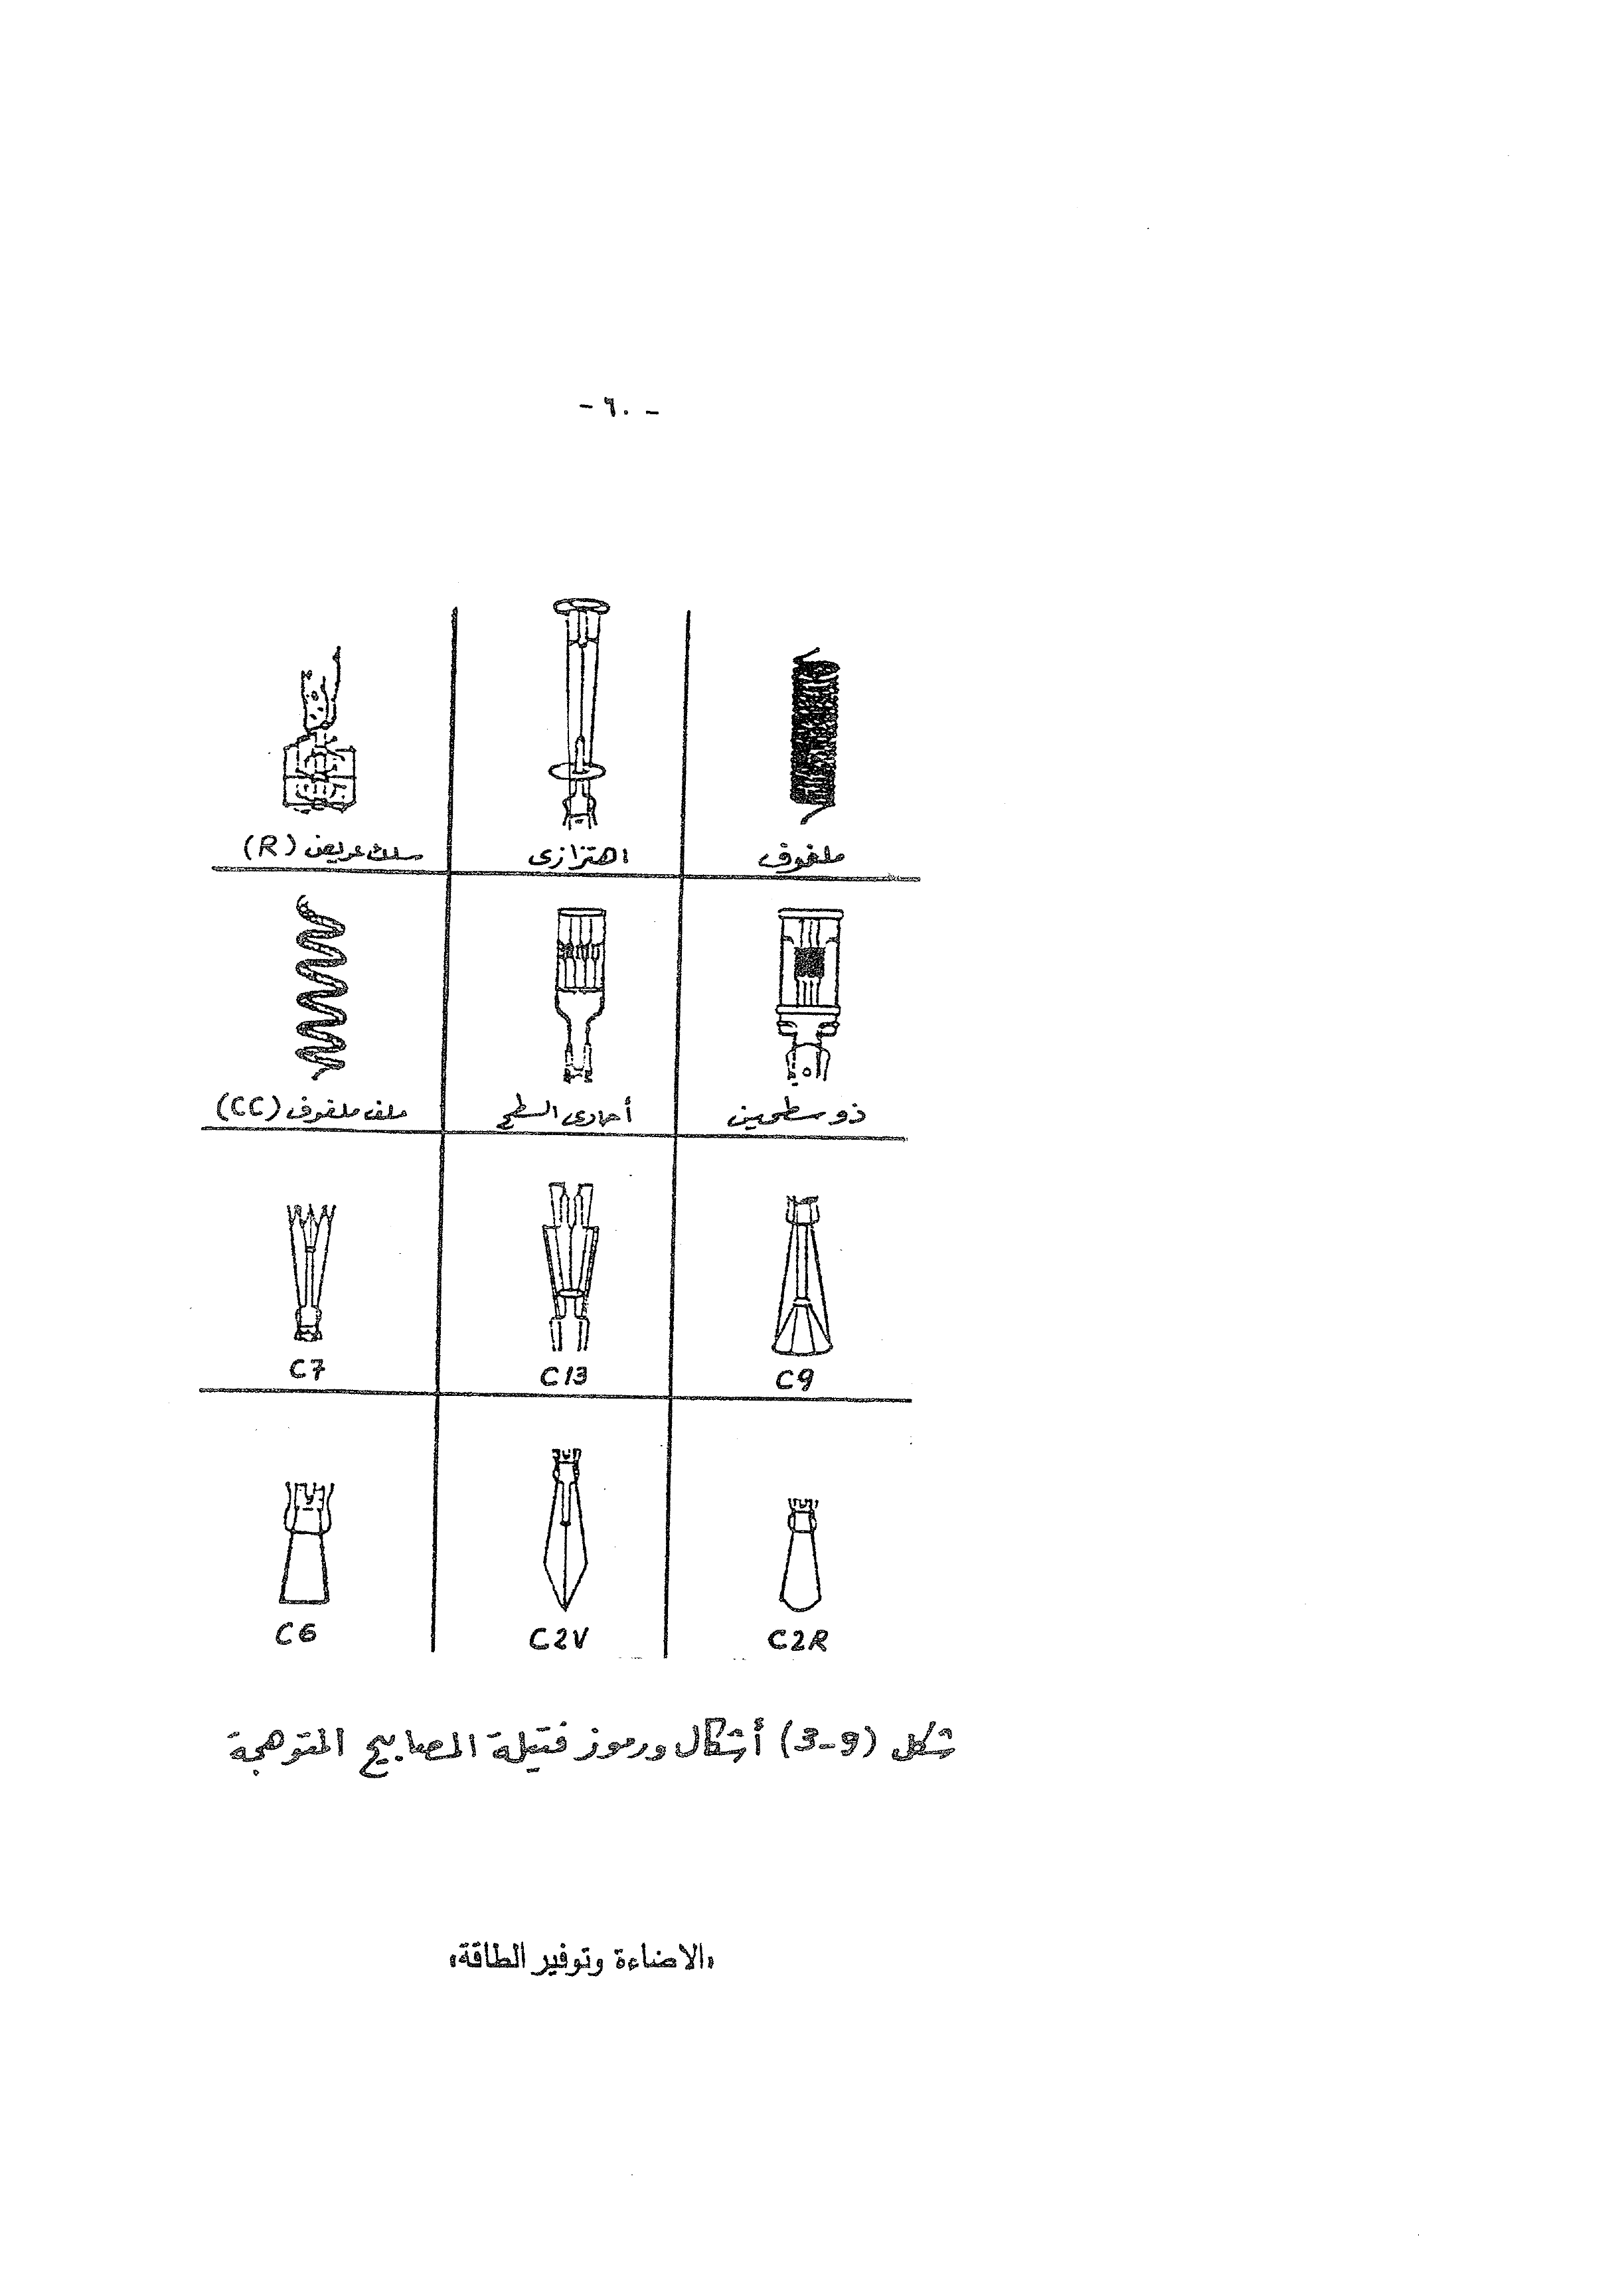 - ٦٠ -
ملفوف
اهتزازى
سلك عريض (R)
ذو سطحين
أحادى السطح
ملف ملفوف (CC)
C9
C13
C7
C2R
C2V
C6
شكل (9-3) أشكال ورموز فتيلة المصابيح المتوهجة
«الاضاءة وتوفير الطاقة»